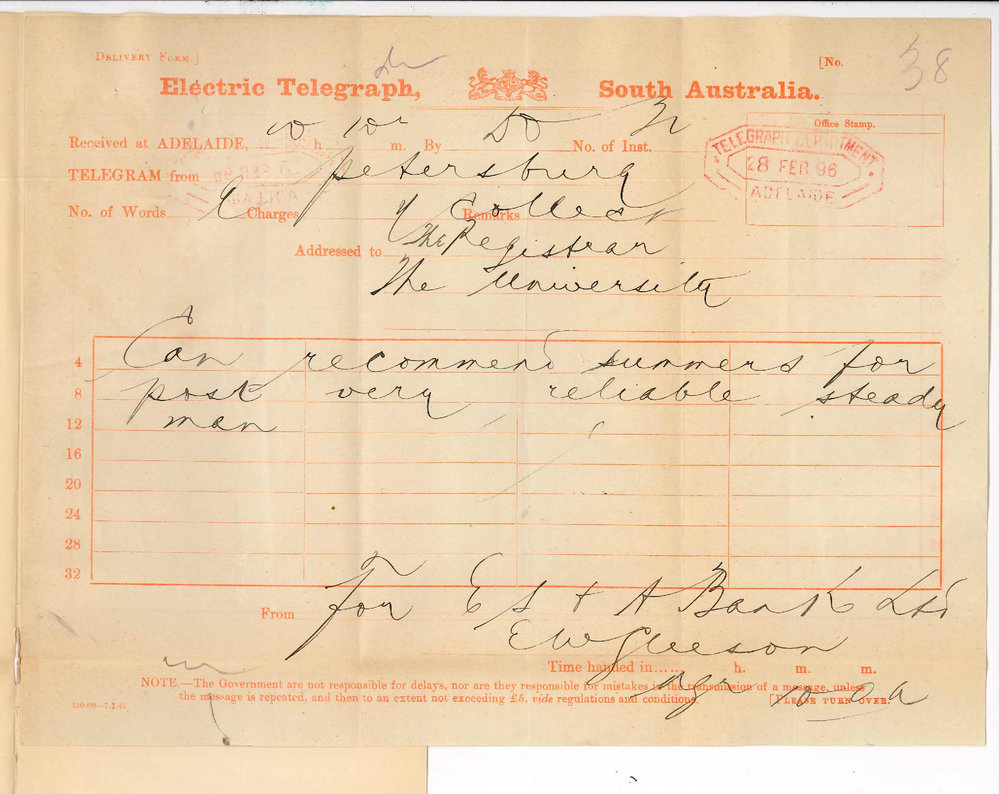 38
DELIVERY FORM.] [No.
Electric Telegraph, South Australia.
Office Stamp.
TELEGRAPH DEPARTMENT
28 FEB 96
ADELAIDE
Received at ADELAIDE, 10 h. 10 m. By DO No. of Inst.
TELEGRAM from Petersburg
No. of Words Charges Collect Remarks
Addressed to The Registrar
The University
4 Can recommend summers for
8 post very reliable steady
12 man
16
20
24
28
32
From For E S & A Bank Ltd
E W Gleeson
Time handed in...... h. m. m.
Mgr 10 2a
NOTE.—The Government are not responsible for delays, nor are they responsible for mistakes in the transmission of a message, unless
the message is repeated, and then to an extent not exceeding £5, vide regulations and conditions. [PLEASE TURN OVER.